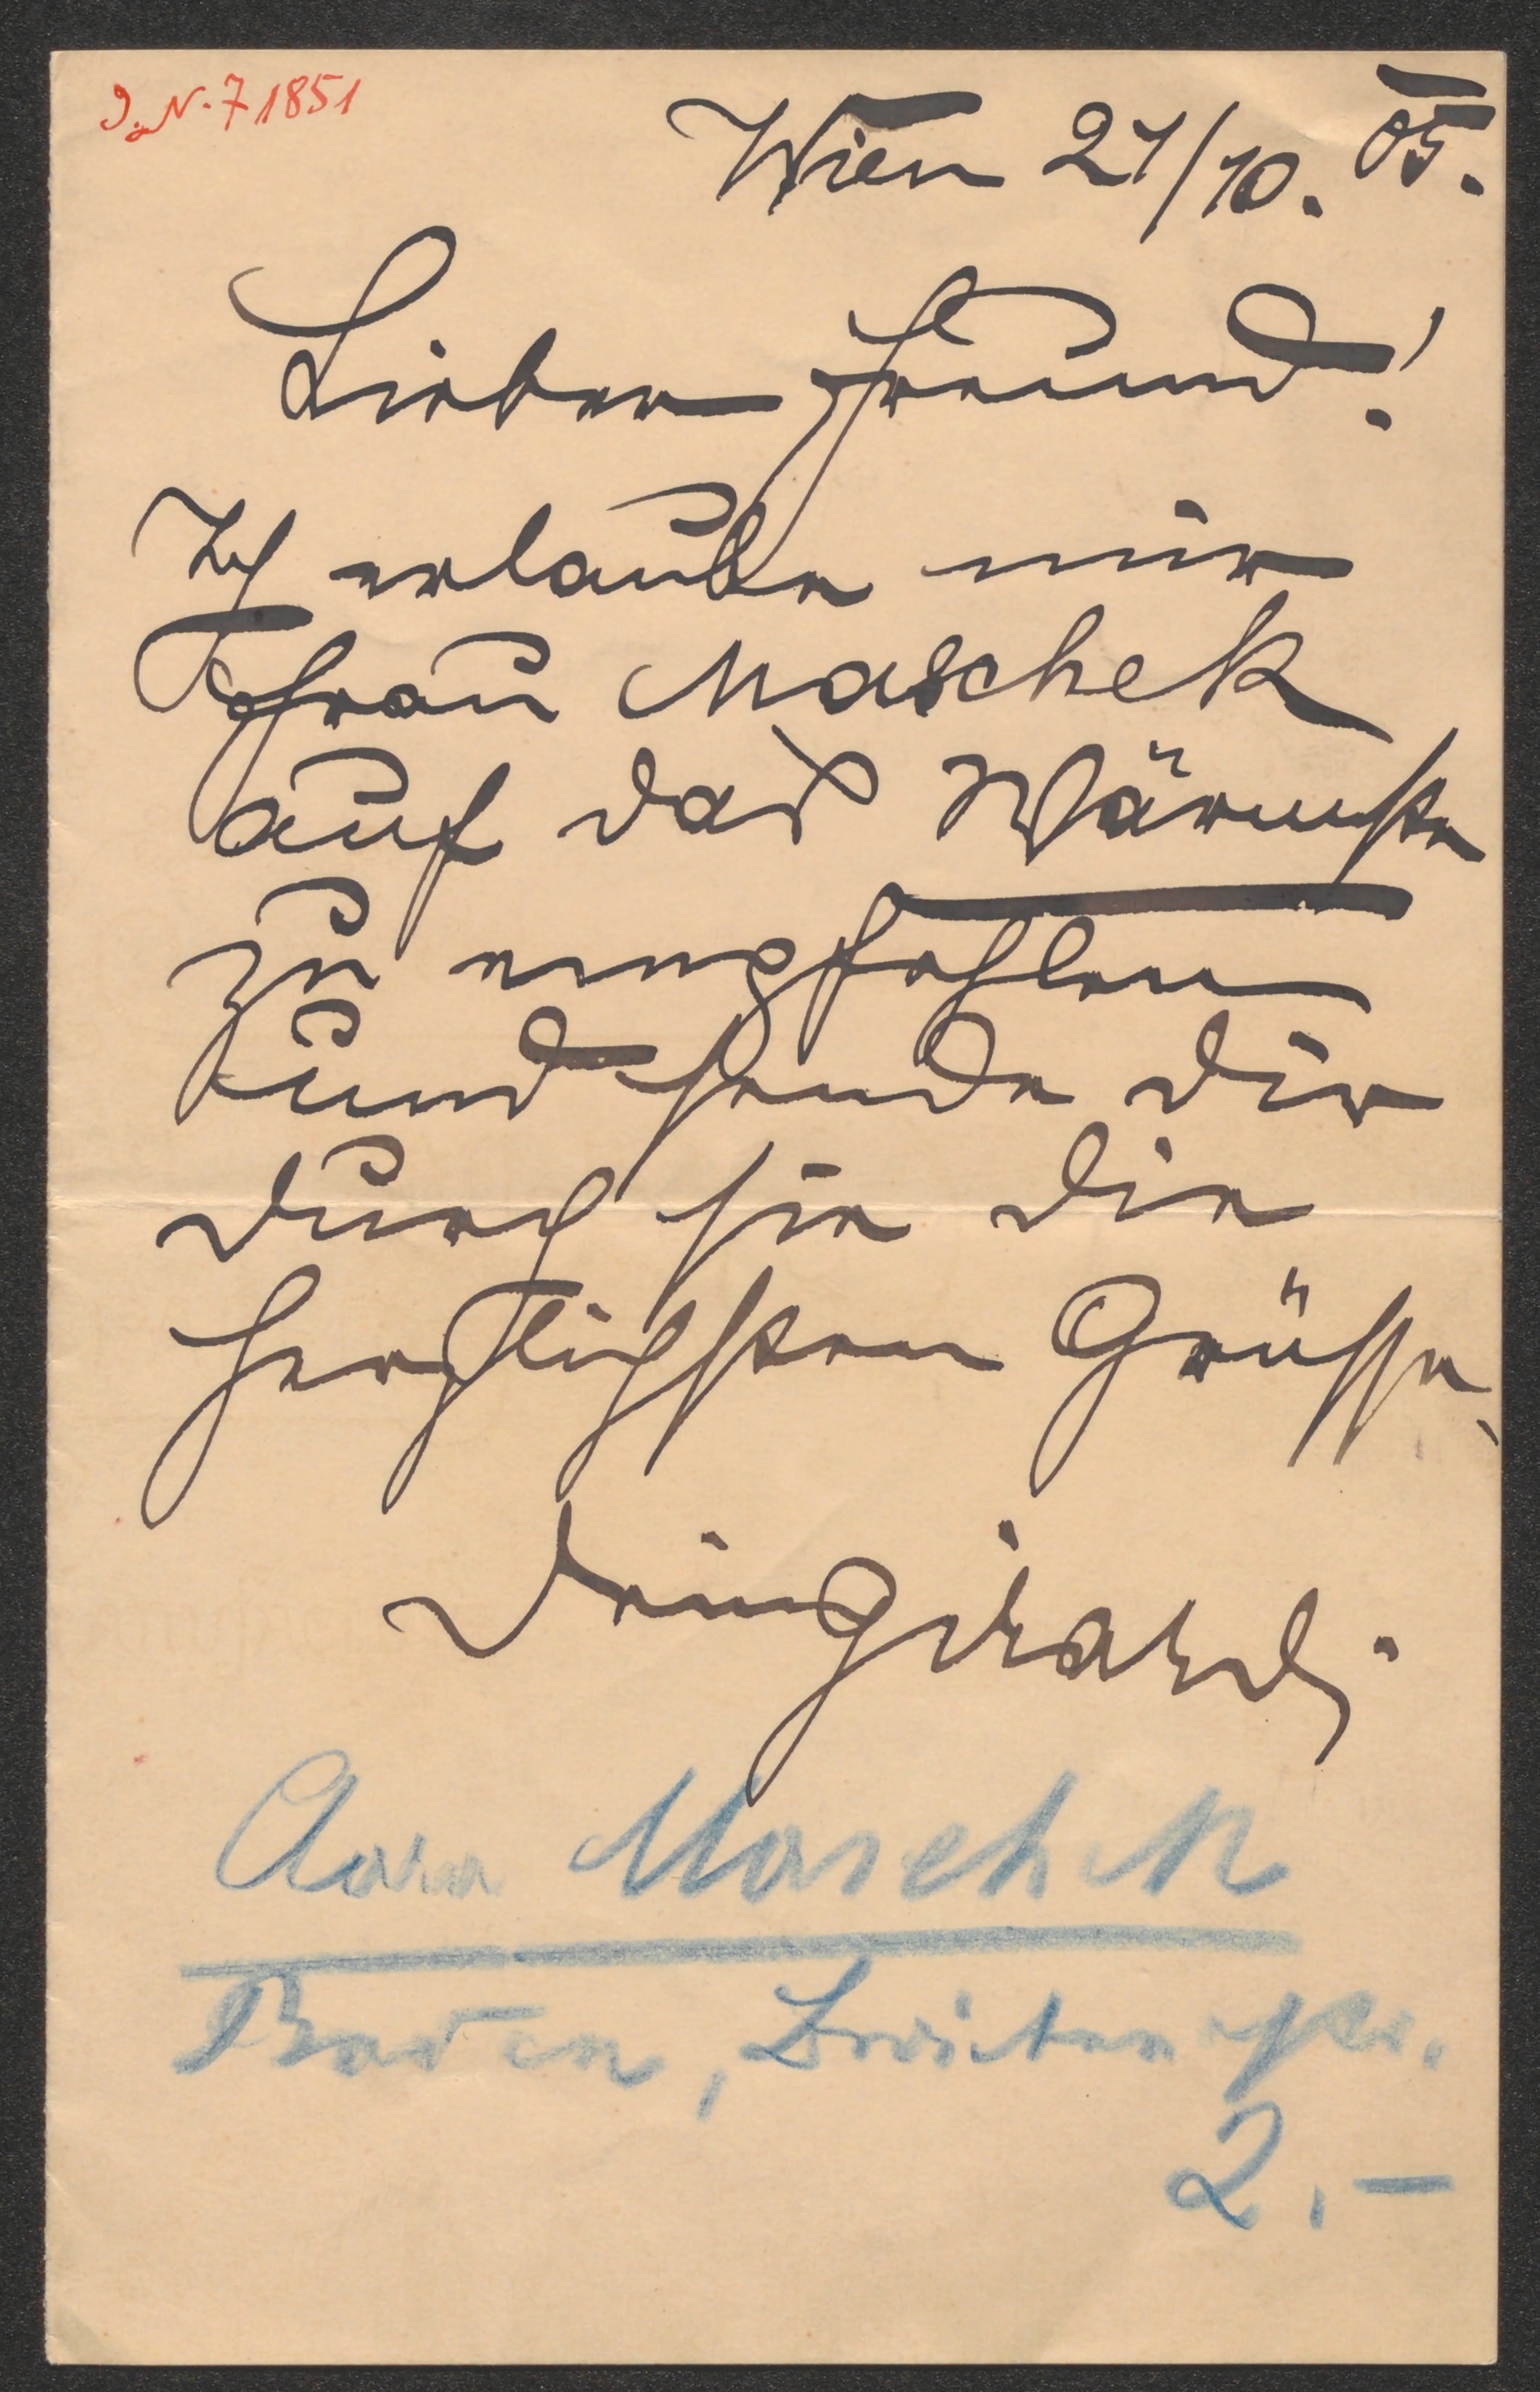 I.N. 71851
Wien 21/10. 05.
Lieber Freund!
Ich erlaube mir
Frau Maschek
auf das Wärmste
zu empfehlen
und sende dir
durch sie die
herzlichsten Grüsse.
Dein Girardi
Maschek
Baden,
2.-